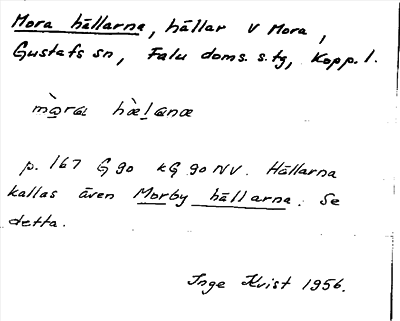 Mora hällarna, hällar V Mora,
Gustafs sn, Falu doms. s. tg, Kopp. l.
p. 167 G 90 kG 90 NV. Hällarna
kallas även Morby hällarna. Se
detta.
Inge Kvist 1956.